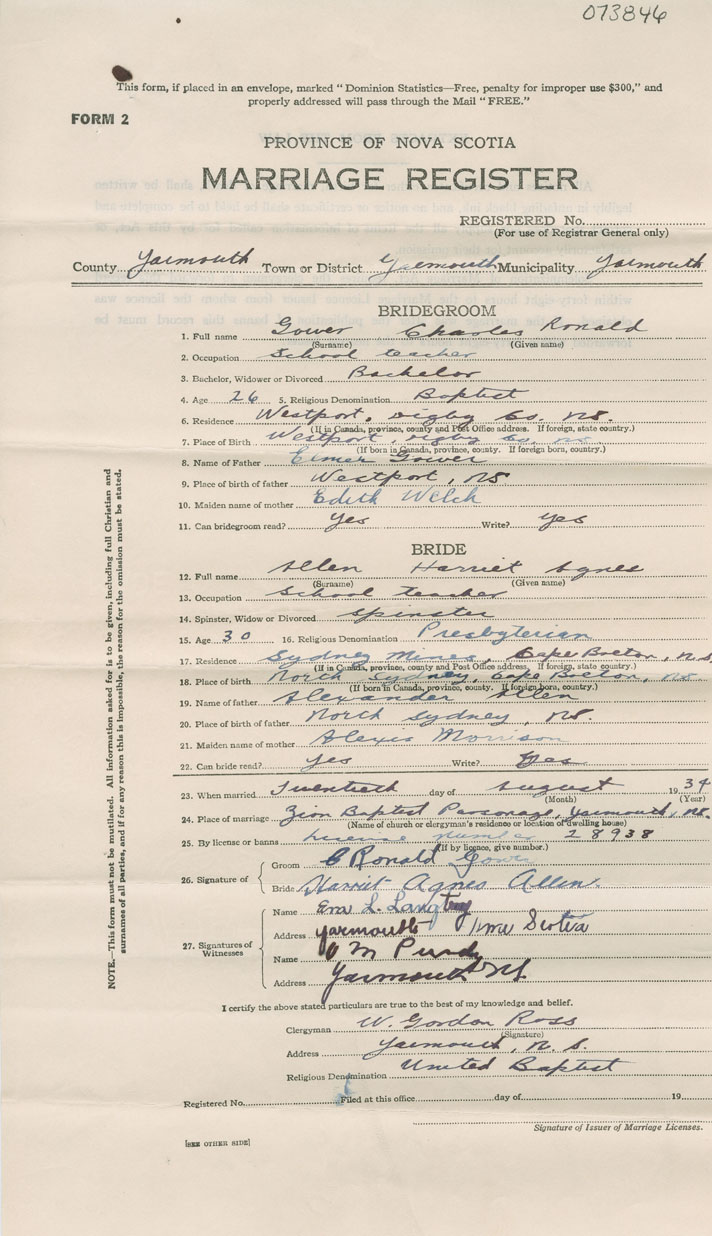 073846
This form, if placed in an envelope, marked "Dominion Statistics—Free, penalty for improper use $300," and
properly addressed will pass through the Mail "FREE."
FORM 2
PROVINCE OF NOVA SCOTIA
MARRIAGE REGISTER
REGISTERED No.
(For use of Registrar General only)
County Yarmouth Town or District Yarmouth Municipality Yarmouth
BRIDEGROOM
1. Full name Gower Charles Ronald
(Surname) (Given name)
2. Occupation School teacher
3. Bachelor, Widower or Divorced Bachelor
4. Age 26 5. Religious Denomination Baptist
6. Residence Westport, Digby Co. N.S.
(If in Canada, province, county and Post Office address. If foreign, state country.)
7. Place of Birth Westport, Digby Co. N.S.
(If born in Canada, province, county. If foreign born, country.)
8. Name of Father Elmer Gower
9. Place of birth of father Westport, NS
10. Maiden name of mother Edith Welch
11. Can bridegroom read? Yes Write? Yes
BRIDE
12. Full name Allen Harriet Agnes
(Surname) (Given name)
13. Occupation School teacher
14. Spinster, Widow or Divorced Spinster
15. Age 30 16. Religious Denomination Presbyterian
17. Residence Sydney Mines, Cape Breton, N.S.
(If in Canada, province, county and Post Office address. If foreign, state country.)
18. Place of birth North Sydney, Cape Breton, NS
(If born in Canada, province, county. If foreign born, country.)
19. Name of father Alexander Allen
20. Place of birth of father North Sydney, NS.
21. Maiden name of mother Alexis Morrison
22. Can bride read? Yes Write? Yes
23. When married Twentieth day of August 1934
(Month) (Year)
24. Place of marriage Zion Baptist Parsonage, Yarmouth, NS.
(Name of church or clergyman's residence or location of dwelling house)
25. By license or banns License number 28938
(If by licence, give number.)
26. Signature of
Groom C Ronald Gower
Bride Harriet Agnes Allen.
27. Signatures of Witnesses
Name L.
Address Yarmouth Nova Scotia
Name O M Purdy
Address Yarmouth NS
I certify the above stated particulars are true to the best of my knowledge and belief.
Clergyman W. Gordon Ross
(Signature)
Address Yarmouth, N. S.
Religious Denomination United Baptist
Registered No. Filed at this office day of 19
Signature of Issuer of Marriage Licenses.
[SEE OTHER SIDE]
NOTE.—This form must not be mutilated. All information asked for is to be given, including full Christian and
surnames of all parties, and if for any reason this is impossible, the reason for the omission must be stated.